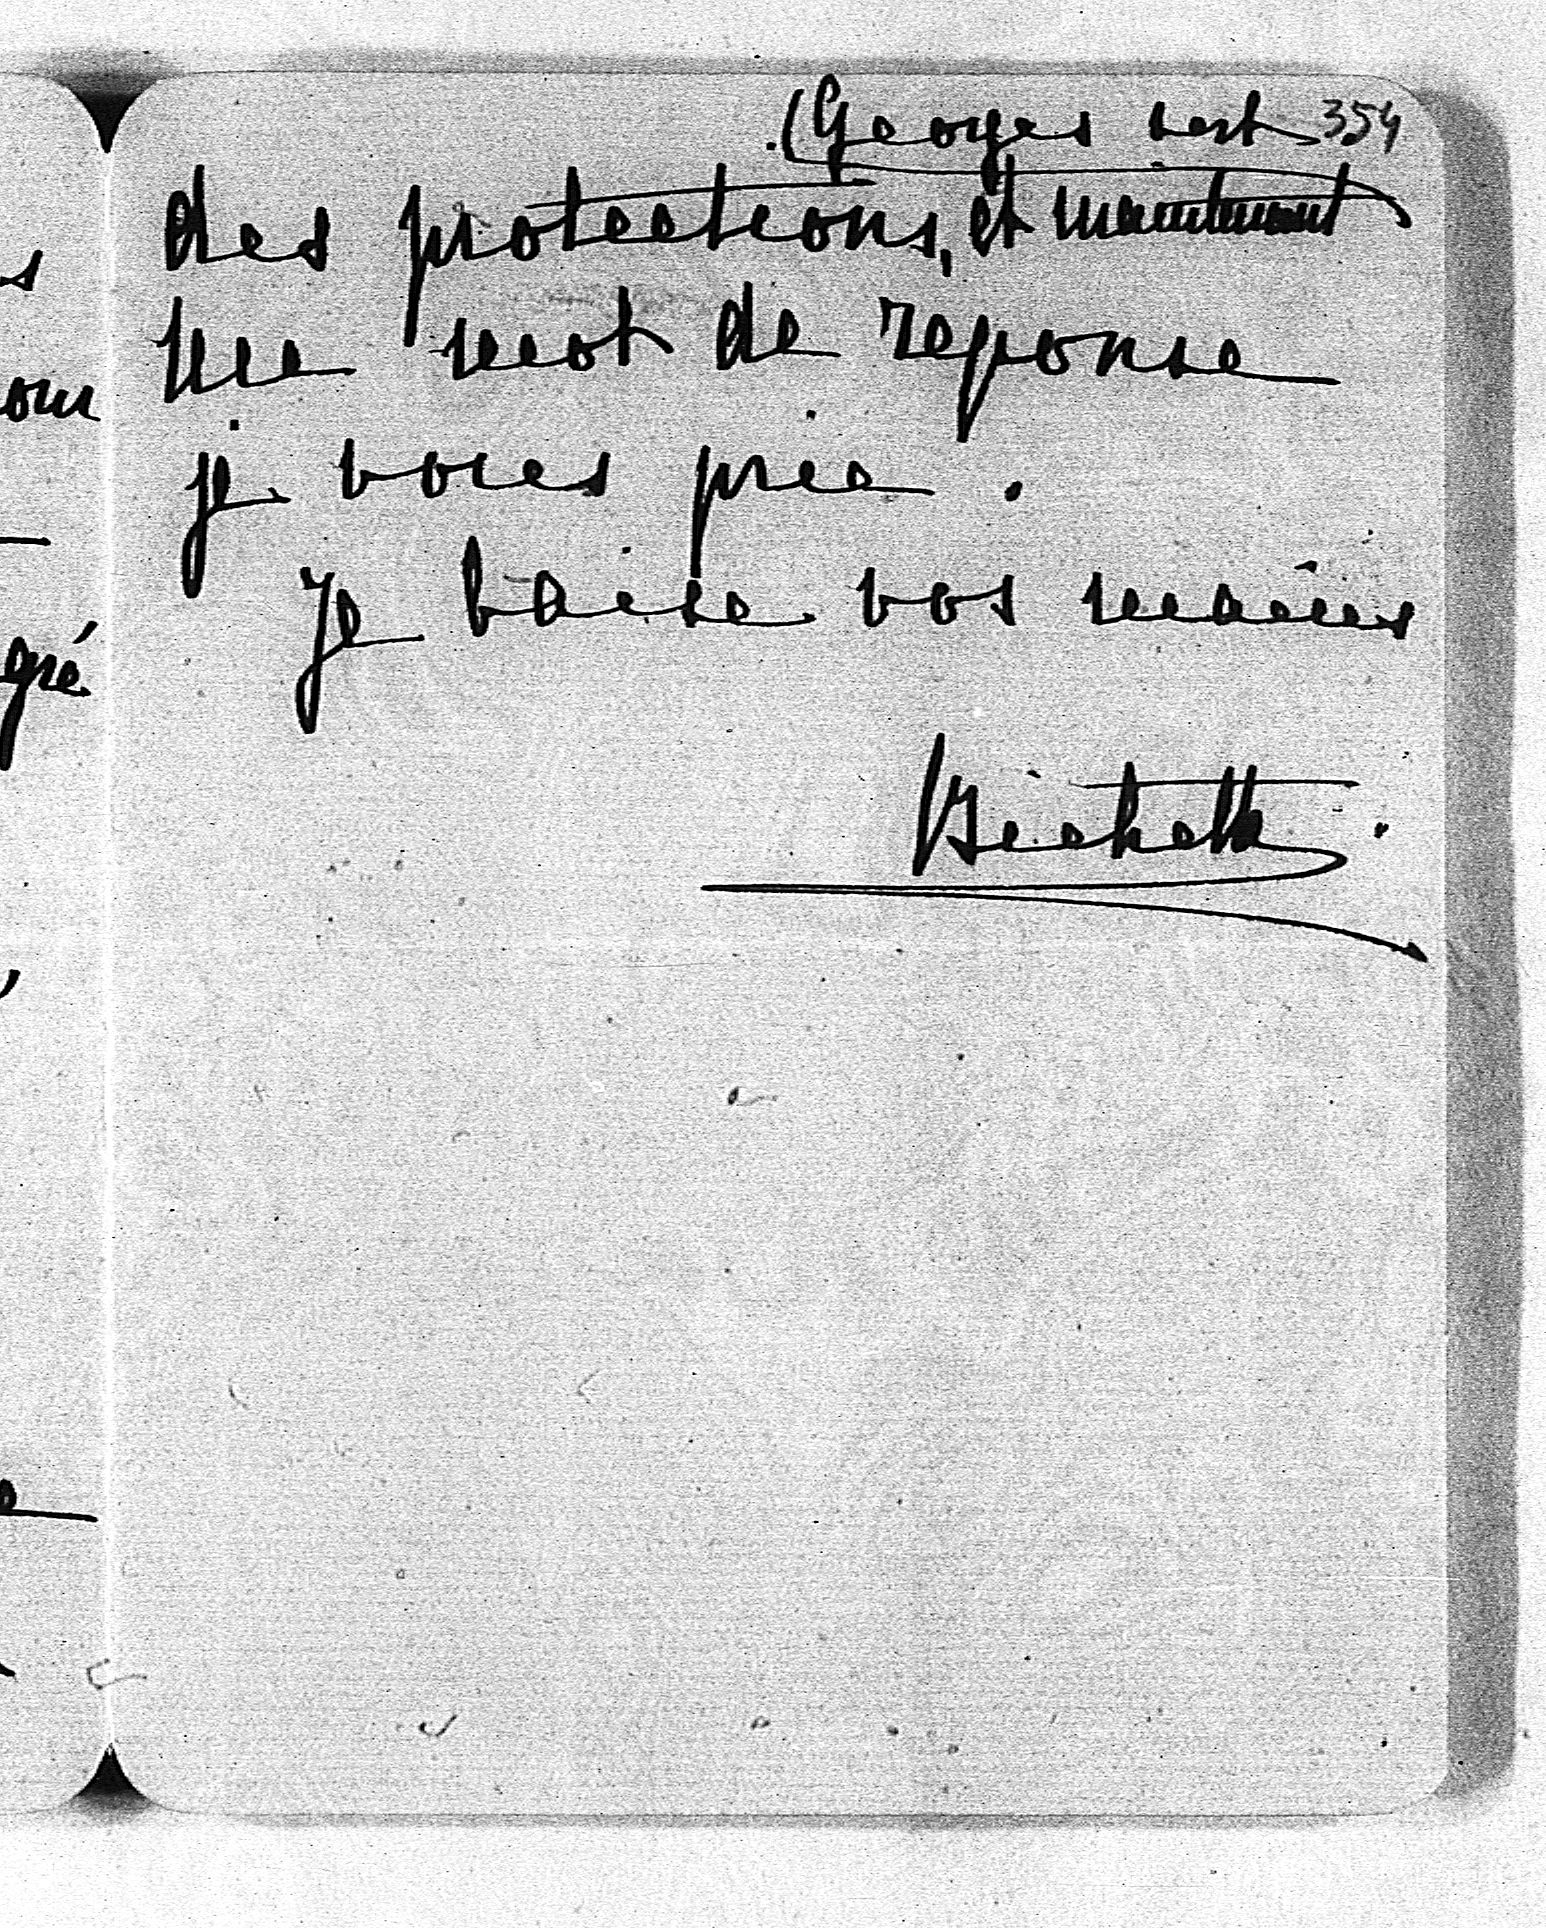 (Georges sert 354
des protections, et maintenant
un mot de reponse
je vous prie.
Je baise vos mains
s
our
gré